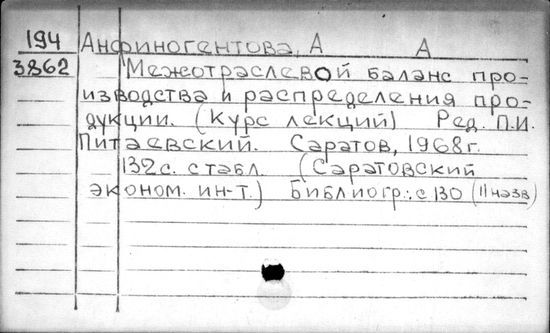 194 Анфиногентова, А А
3862 Межотраслевой баланс про-
изводства и распределения про-
дукции. (Курс лекций) Ред. П.И.
Питаевский. Саратов, 1968г.
132с. с табл. (Саратовский
эконом. ин-т.) Библиогр.: с 130 (11 назв)